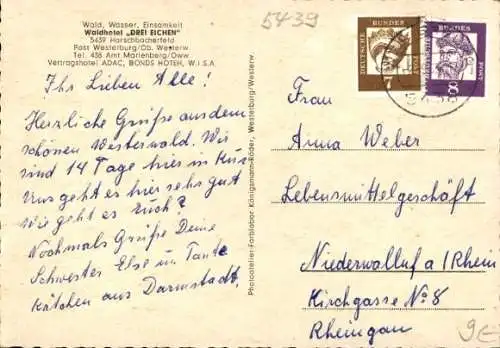 Wald, Wasser, Einsamkeit
Waldhotel „DREI EICHEN"
5439 Harschbacherfeld
Post Westerburg/Ob. Westerw
Tel. 438 Amt Marienberg/Oww
Vertragshotel ADAC, BONDS HOTEH, W.I.S.A.
5439
Ihr Lieben Alle!
Herzliche Grüße aus dem
schönen Westerwald. Wir
sind 14 Tage hier in Kur
Uns geht es hier sehr gut
Wie geht es Euch?
Nochmals Grüße Deine
Schwester Else un Tante
Kätchen aus Darmstadt,
Photocelller-Farblabor Königsmann-Röder, Westerburg/Westerw.
DEUTSCHE BUNDESPOST
7
DEUTSCHE BUNDESPOST
8
Frau
Anna Weber
Lebensmittelgeschäft
Niederwalluf a/Rhein
Kirchgasse No 8
Rheingau
9e